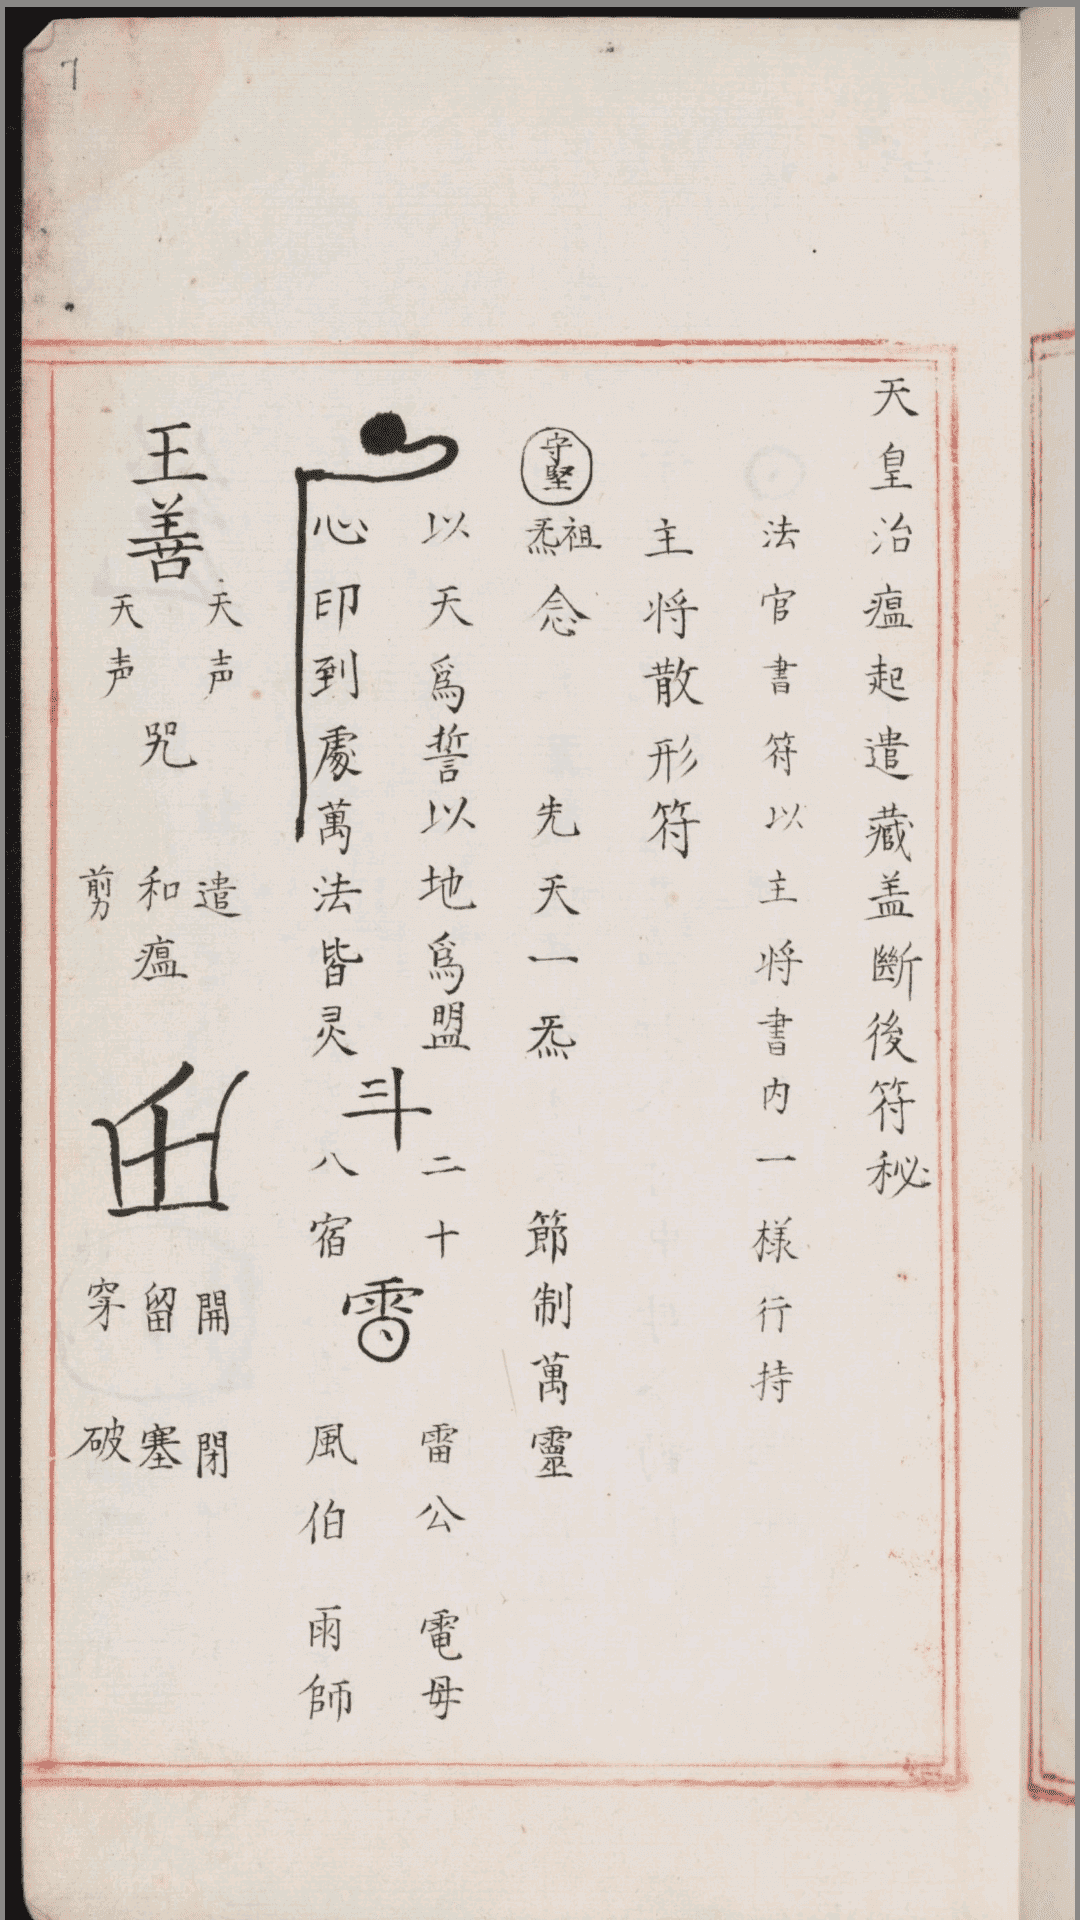 天皇治瘟起遣藏盖斷後符秘
法官書符以主將書内一樣行持
主将散形符
守堅
祖炁
念 先天一炁 節制萬靈
以天爲誓以地爲盟
心印到處萬法皆灵
斗
二十
八宿
雷公 電母
風伯 雨師
王善
天声
天声
咒
遣
和瘟
剪
開 閉
留 塞
穿 破
7